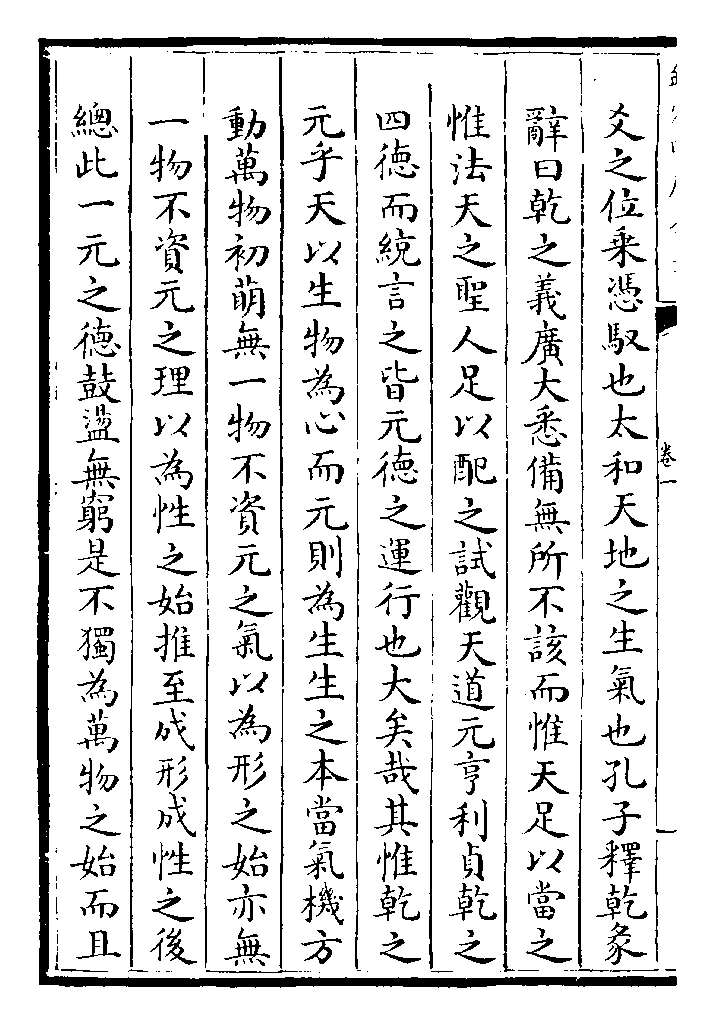 卷一
爻之位乗憑馭也太和天地之生氣也孔子釋乾彖
辭曰乾之義廣大悉備無所不該而惟天足以當之
惟法天之聖人足以配之試觀天道元亨利貞乾之
四德而統言之皆元德之運行也大矣哉其惟乾之
元乎天以生物為心而元則為生生之本當氣機方
動萬物初萌無一物不資元之氣以為形之始亦無
一物不資元之理以為性之始推至成形成性之後
總此一元之德鼓盪無窮是不獨為萬物之始而且